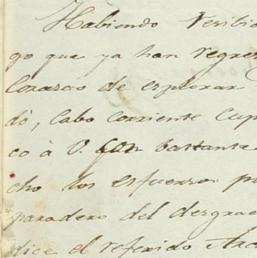 Habiendo recibi
go que ya han regres
Corasco de esplorar
dó, Cabo corriente Cup
có à V. con bastante
cho los esfuerzos p
paradero del desgrac
dice el referido Arc